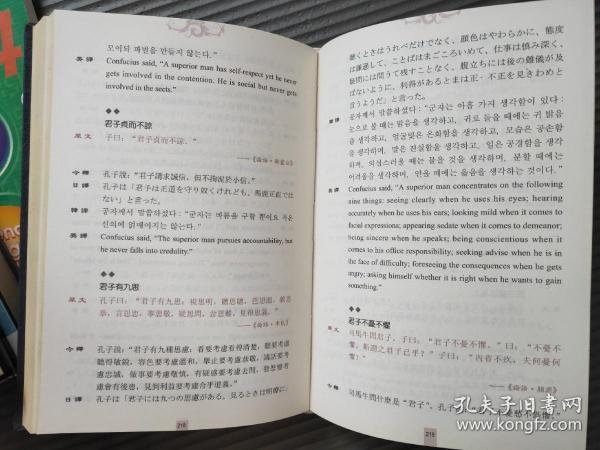 모이되 파벌을 만들지 않는다."
英譯 Confucius said, "A superior man has self-respect yet he never
gets involved in the contention. He is social but never gets
involved in the sects."
◆◆
君子貞而不諒
原文 子曰：“君子貞而不諒。”
——《論語·衛靈公》
今釋 孔子說：“君子講求誠信，但不拘泥於小信。”
日譯 孔子は「君子は正道を守り奴くけれども、馬鹿正直では
ない」と言った。
韓譯 공자께서 말씀하셨다: "군자는 바름을 구할 뿐이요 작은
신의에 얽매이지는 않는다."
英譯 Confucius said, "The superior man pursues accountability, but
he never falls into credulity."
◆◆
君子有九思
原文 孔子曰：“君子有九思：視思明，聽思聰，色思溫，貌思
恭，言思忠，事思敬，疑思問，忿思難，見得思義。”
——《論語·季氏》
今釋 孔子說：“君子有九種思慮：看要考慮看得清楚，聽要考慮
聽得敏銳，容色要考慮溫和，舉止要考慮恭敬，講話要考慮
忠誠，做事要考慮慎重，有疑惑要考慮去問，發怒要考
慮會有後患，見到利益要考慮合乎道義。”
日譯 孔子は「君子には九つの思慮がある。見るときは明瞭に、
218
聴くときはうれべだけでなく、顔色はやわらかに、態度
は謙遜して、ことばはまごころいめて、仕事は慎み深く、
疑問には問うて残すことなく、腹立ちには後の難儀が及
ばないように、利得があるときは正·不正を見きわめと
言うようだ」と言った。
韓譯 공자께서 말씀하셨다: "군자는 아홉 가지 생각함이 있다:
눈으로 볼 때는 밝음을 생각하고, 귀로 들을 때에는 귀 밝음
을 생각하며, 얼굴빛은 온화함을 생각하고, 모습은 공손함
을 생각하며, 말은 진실함을 생각하고, 일은 공경함을 생각
하며, 의심스러울 때는 물을 것을 생각하며, 분할 때에는
어려움을 생각하며, 얻을 때에는 옳음을 생각하는 것이다."
英譯 Confucius said, "A superior man concentrates on the following
nine things: seeing clearly when he uses his eyes; hearing
accurately when he uses his ears; looking mild when it comes to
facial expressions; appearing sedate when it comes to demeanor;
being sincere when he speaks; being conscientious when it
comes to his office responsibility; seeking advise when he is in
the face of difficulty; foreseeing the consequences when he gets
angry; asking himself whether it is right when he wants to gain
something."
◆◆
君子不憂不懼
原文 司馬牛問君子，子曰：“君子不憂不懼。”曰：“不憂不
懼，斯謂之君子已乎？”子曰：“內省不疚，夫何憂何
懼？”
——《論語·顏淵》
今釋 司馬牛問什麼是“君子”。孔子
219
孔夫子旧书网